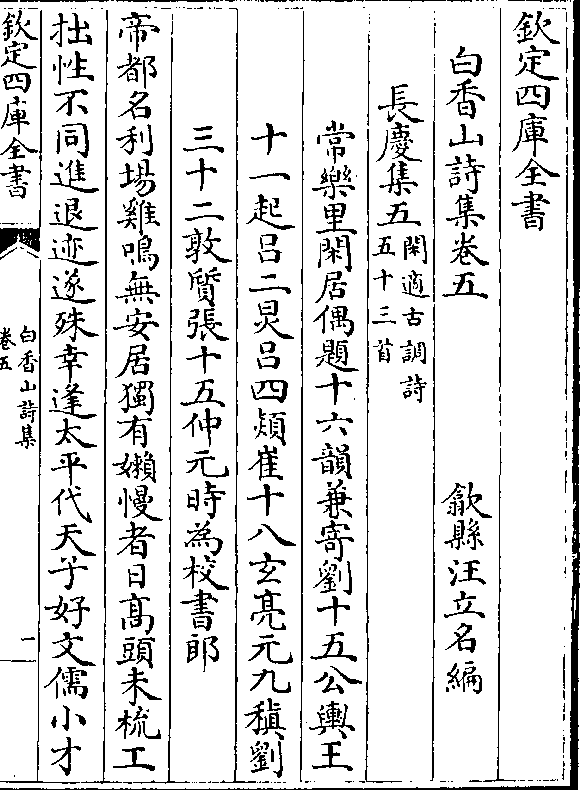 欽定四庫全書
白香山詩集卷五
歙縣汪立名編
長慶集五
閑適古調詩
五十三首
常樂里閑居偶題十六韻兼寄劉十五公輿王
十一起呂二炅呂四熲崔十八玄亮元九稹劉
三十二敦質張十五仲元時為校書郎
帝都名利場雞鳴無安居獨有嬾慢者日髙頭未梳工
拙性不同進退迹遂殊幸逢太平代天子好文儒小才
欽定四庫全書
白香山詩集
卷五
一